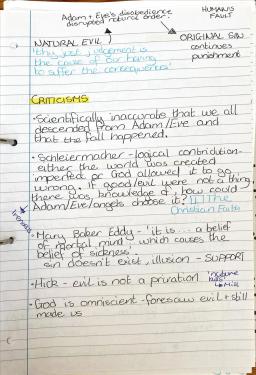 Adam + Eve's disobedience
disrupted natural order.
HUMANS
FAULT
NATURAL EVIL
ORIGINAL SIN
continues
punishment
'thy just judgement is
the cause of our having
to suffer the consequences'
CRITICISMS
• Scientifically inaccurate that we all
descended from Adam/Eve and
that the fall happened.
• Schleiermacher - logical contradiction -
either the world was created
imperfect or God allowed it to go
wrong. If good/evil were not a thing
there was knowledge of, how could
Adam/Eve/angels choose it?
The
Christian Faith
Irenaeus
• Mary Baker Eddy - 'it is... a belief
of mortal mind', which causes the
belief of sickness.
sin doesn't exist, illusion - SUPPORT
• Hick - evil is not a privation
'nature
kills'
↳ Mill
• God is omniscient - foresaw evil + still
made us